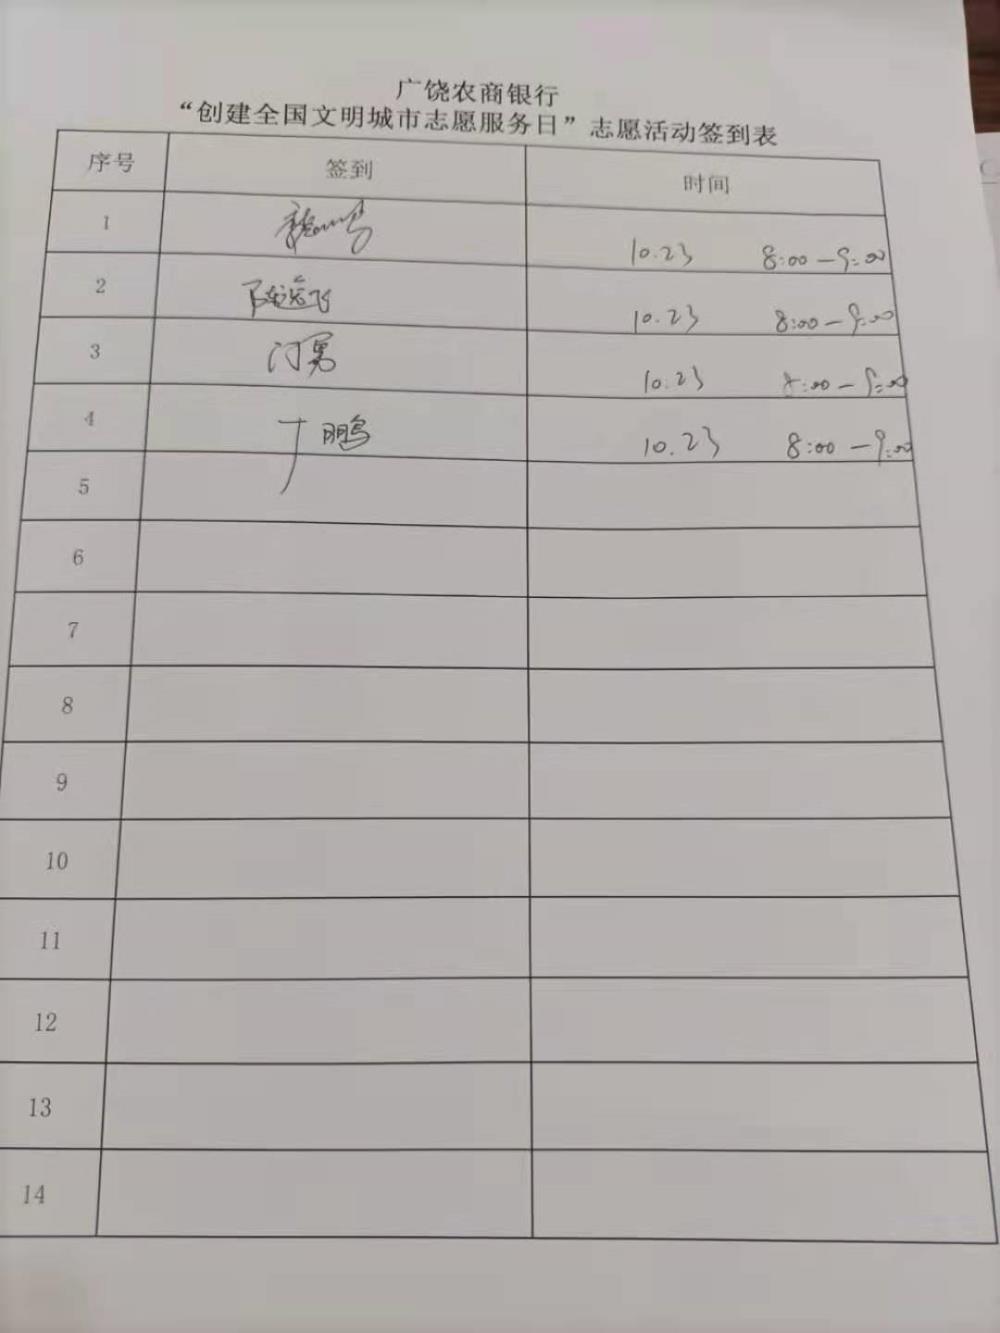 广饶农商银行
“创建全国文明城市志愿服务日”志愿活动签到表
序号 签到 时间
1 10.23 8:00-9:00
2 陈远飞 10.23 8:00-9:00
3 门勇 10.23 8:00-9:00
4 丁鹏 10.23 8:00-9:00
5
6
7
8
9
10
11
12
13
14